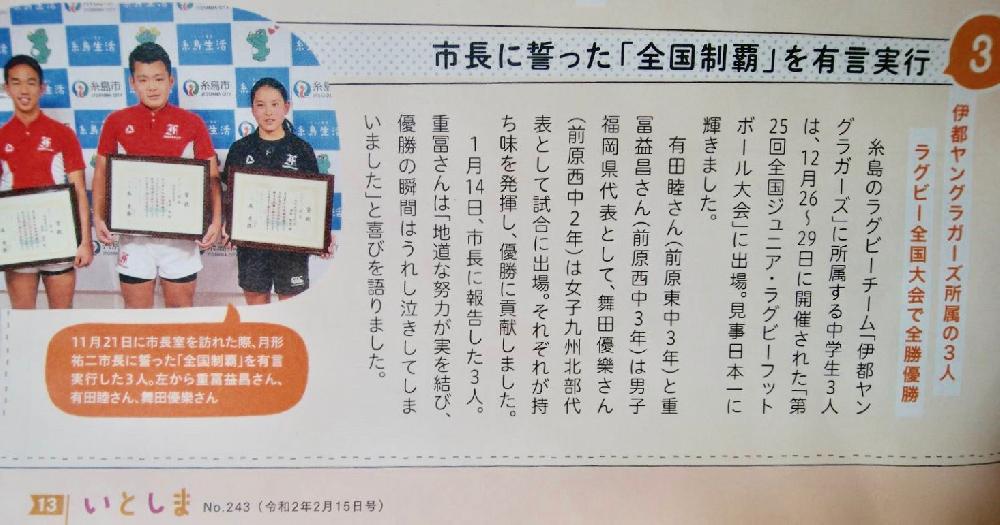 3
市長に誓った「全国制覇」を有言実行
伊都ヤングラガーズ所属の3人
ラグビー全国大会で全勝優勝
糸島のラグビーチーム「伊都ヤン
グラガーズ」に所属する中学生3人
は、12月26~29日に開催された「第
25回全国ジュニア・ラグビーフット
ボール大会」に出場。見事日本一に
輝きました。
有田睦さん(前原東中3年)と重
冨益昌さん(前原西中3年)は男子
福岡県代表として、舞田優樂さん
(前原西中2年)は女子九州北部代
表として試合に出場。それぞれが持
ち味を発揮し、優勝に貢献しました。
1月14日、市長に報告した3人。
重冨さんは「地道な努力が実を結び、
優勝の瞬間はうれし泣きしてしま
いました」と喜びを語りました。
糸島生活
糸島市
糸島生活
糸島市
糸島生活
11月21日に市長室を訪れた際、月形
祐二市長に誓った「全国制覇」を有言
実行した3人。左から重冨益昌さん、
有田睦さん、舞田優樂さん
13
いとしま
No.243(令和2年2月15日号)